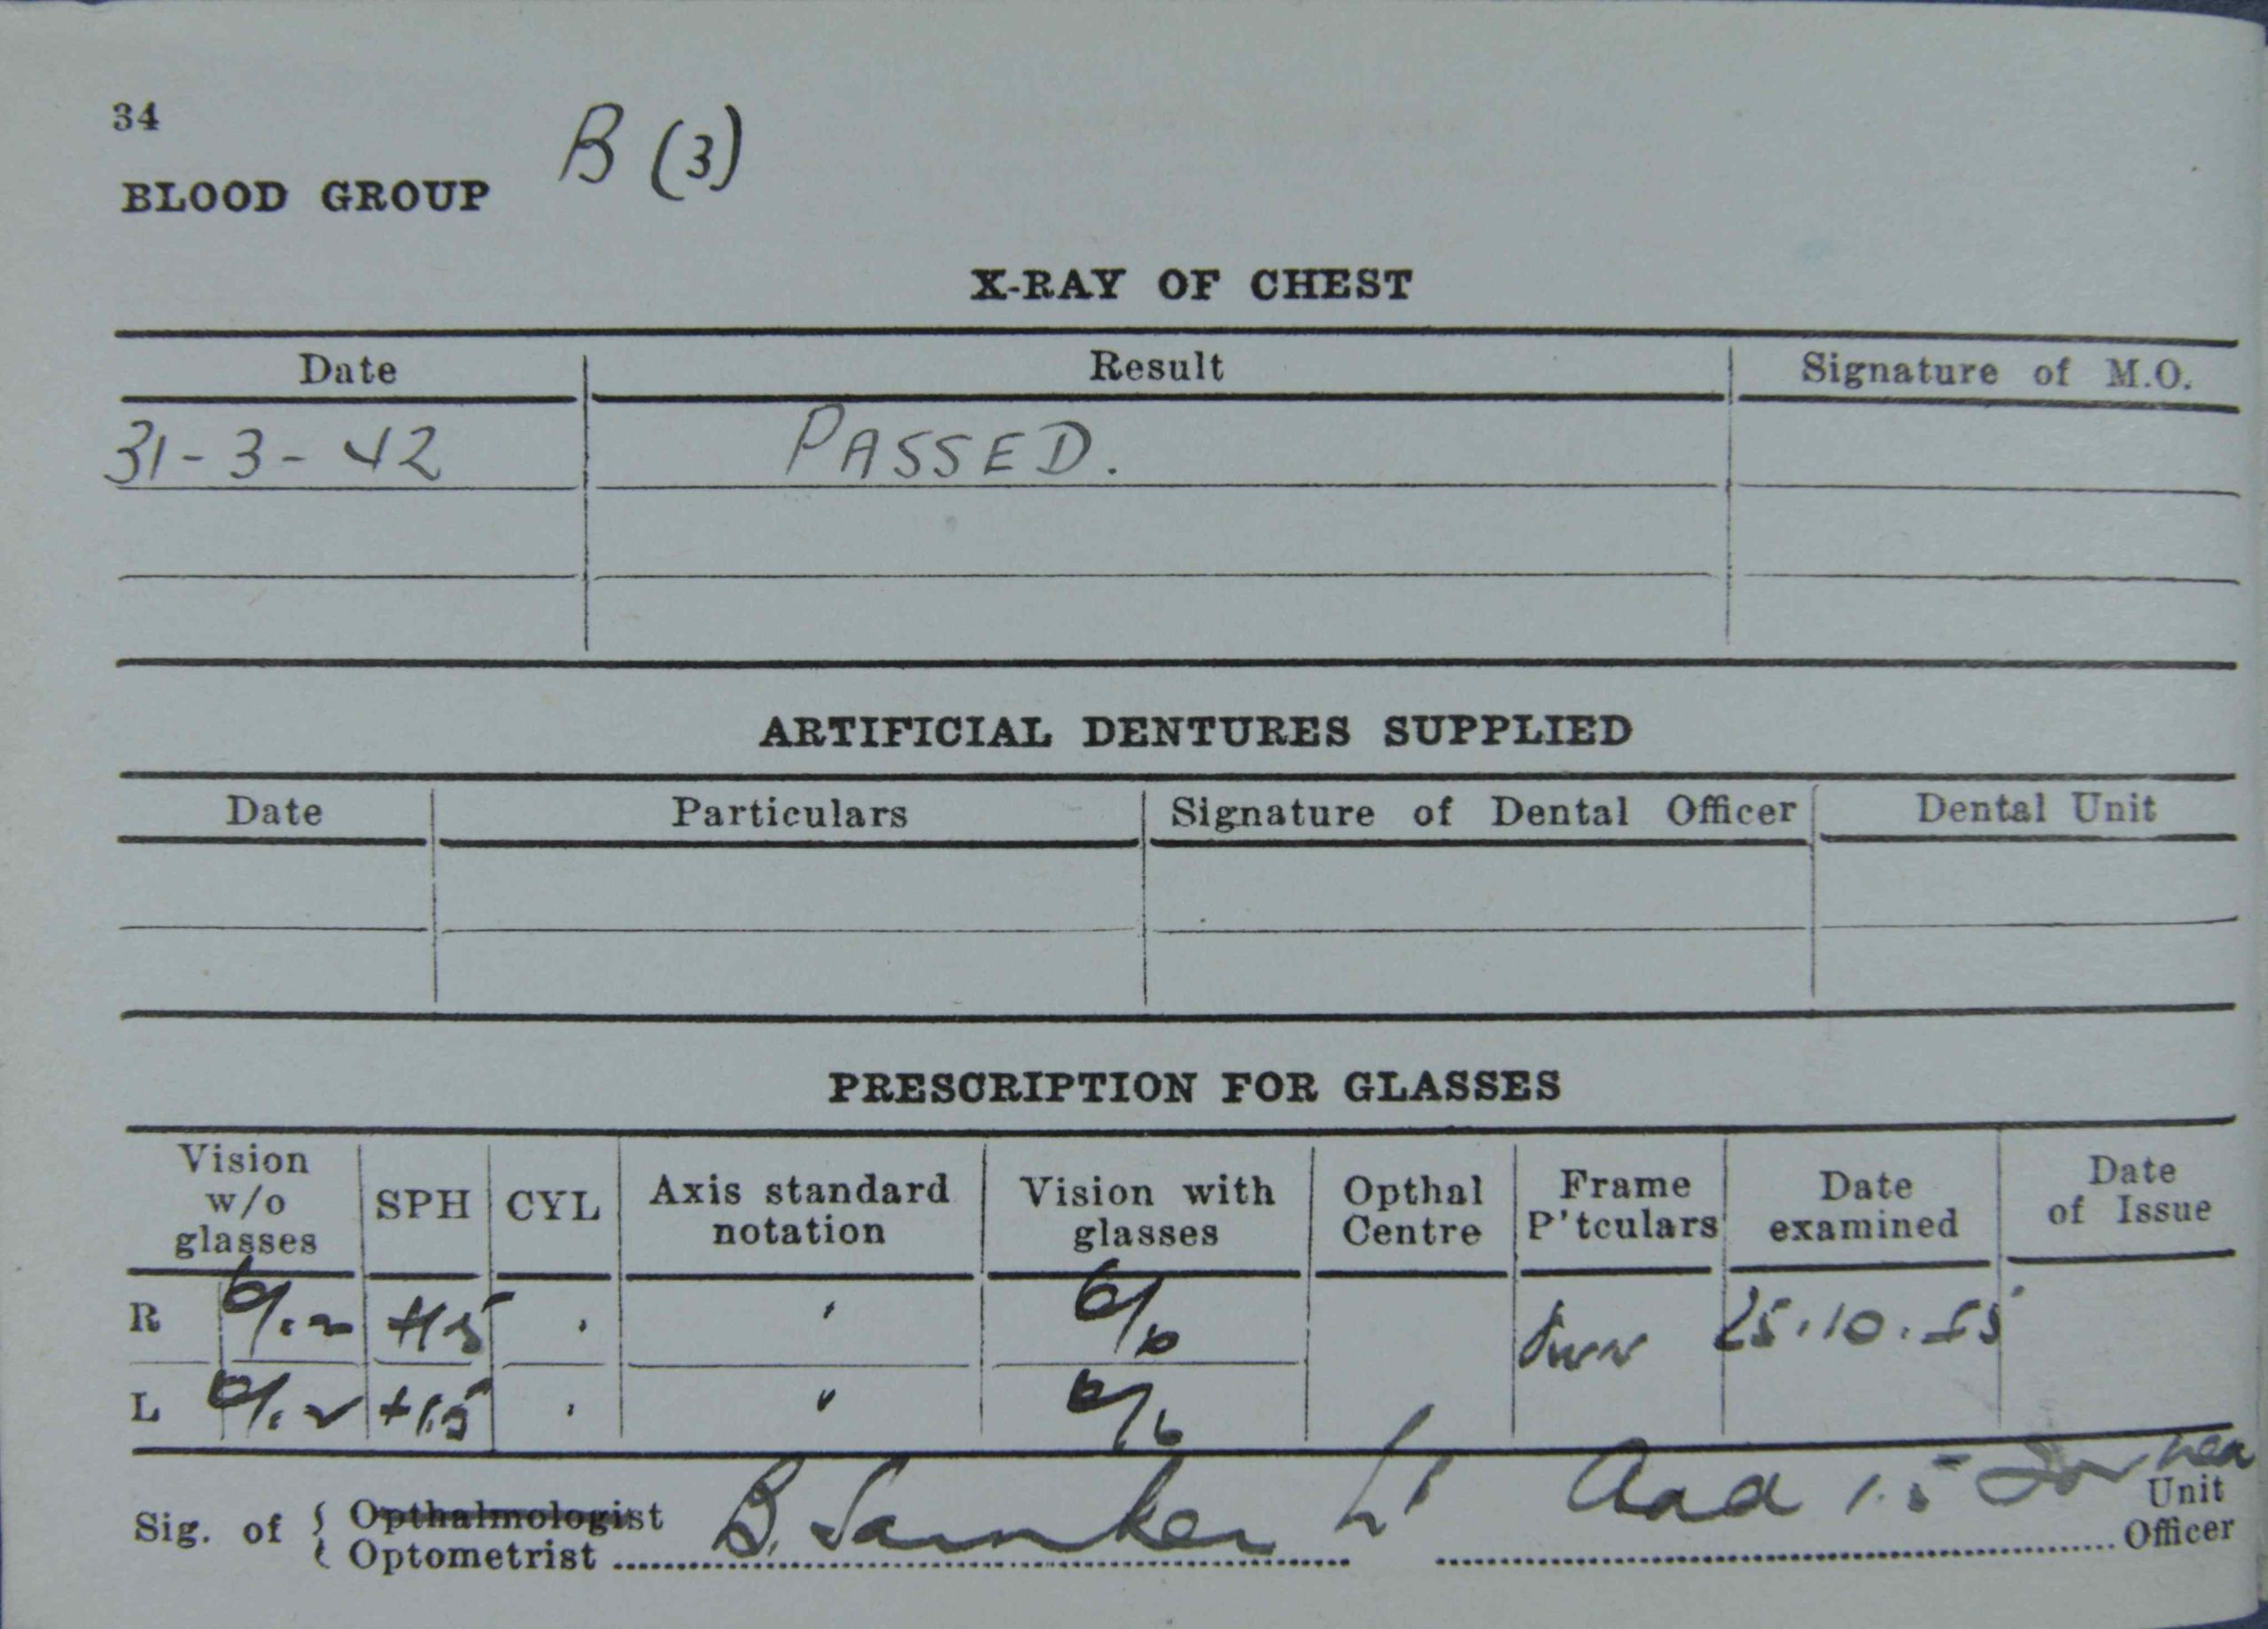 34
BLOOD GROUP B (3)
X-RAY OF CHEST
Date Result Signature of M.O.
31-3-42 PASSED.
ARTIFICIAL DENTURES SUPPLIED
Date Particulars Signature of Dental Officer Dental Unit
PRESCRIPTION FOR GLASSES
Vision w/o glasses SPH CYL Axis standard notation Vision with glasses Opthal Centre Frame P'tculars Date examined Date of Issue
R 6/12 +1.5 6/6 25.10.55
L 6/12 +1.5 6/6
Sig. of { Opthalmologist
Optometrist B. Lt Add 1.5 Unit Officer